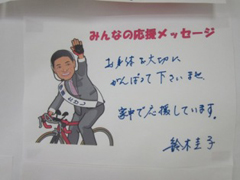 みんなの応援メッセージ
お身体を大切に
がんばって下さいませ
家中で応援しています。
鈴木圭子